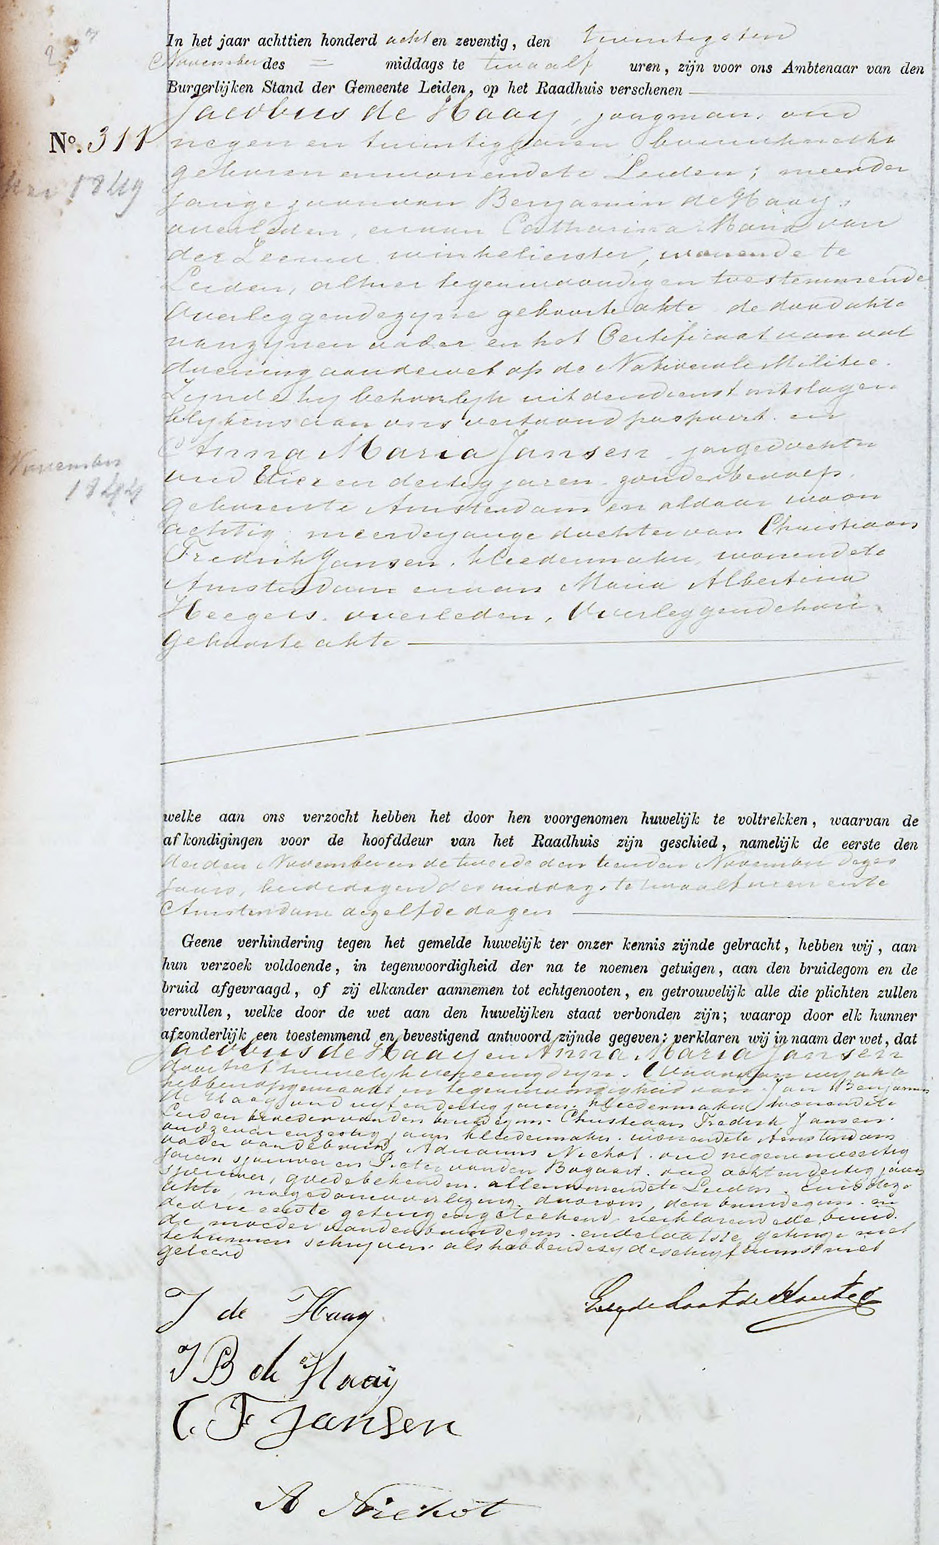 In het jaar achttien honderd acht en zeventig, den twintigsten
November des = middags te twaalf uren, zijn voor ons Ambtenaar van den
Burgerlijken Stand der Gemeente Leiden, op het Raadhuis verschenen
Jacobus de Haay, jongman, oud
No. 311
negen en twintig jaren bouwknecht
geboren en wonende te Leiden; meerder
1849
jarige zoon van Benjamin de Haay,
overleden, en van Catharina Maria van
der Leeuw winkelierster, wonende te
Leiden, alhier tegenwoordig en toestemmende
Overleggende zijne geboorte akte de dood akte
van zijnen vader en het Certificaat van vol
doening aan de wet op de Nationale Militie.
Zijnde hij behoorlijk uit den dienst ontslagen
blijkens aan ons vertoond paspoort. en
Anna Maria Jansen, jongedochter
November
oud vier en dertig jaren, zonder beroep,
1844
geboren te Amsterdam en aldaar woon
achtig, meerderjarige dochter van Christiaan
Fredrik Jansen, kleedermaker, wonende te
Amsterdam en van Maria Albertina
Heegers, overleden, Overleggende hare
geboorte akte
welke aan ons verzocht hebben het door hen voorgenomen huwelijk te voltrekken, waarvan de
afkondigingen voor de hoofddeur van het Raadhuis zijn geschied, namelijk de eerste den
derden November en de tweede den tienden November dezes
jaars, beide dagen des middags te twaalf uren en te
Amsterdam dezelfde dagen
Geene verhindering tegen het gemelde huwelijk ter onzer kennis zijnde gebracht, hebben wij, aan
hun verzoek voldoende, in tegenwoordigheid der na te noemen getuigen, aan den bruidegom en de
bruid afgevraagd, of zij elkander aannemen tot echtgenooten, en getrouwelijk alle die plichten zullen
vervullen, welke door de wet aan den huwelijken staat verbonden zijn; waarop door elk hunner
afzonderlijk een toestemmend en bevestigend antwoord zijnde gegeven; verklaren wij in naam der wet, dat
Jacobus de Haay en Anna Maria Jansen
door het huwelijk vereenigd zijn. Waarvan wij akte
hebben opgemaakt in tegenwoordigheid van Jan Benjamin
de Haay, oud vijf en dertig jaren, kleedermaker, wonende te
Leiden broeder van den bruidegom. Christiaan Fredrik Jansen
oud zeven en zestig jaren kleedermaker, wonende te Amsterdam
vader van de bruid, Adrianus Nichot, oud negen en veertig
jaren sjouwer en Pieter van den Bogaart, oud acht en dertig jaren
sjouwer, goede bekenden, allen wonende te Leiden. Luidende
akte, na gedane voorlezing door ons, den bruidegom en
de drie eerste getuigen geteekend, verklarende de bruid
de moeder van den bruidegom en de laatste getuige niet
te kunnen schrijven als hebbende zij de schrijfkunst niet
geleerd
J de Haay
J B de Haaÿ
C. F Jansen
A Nichot